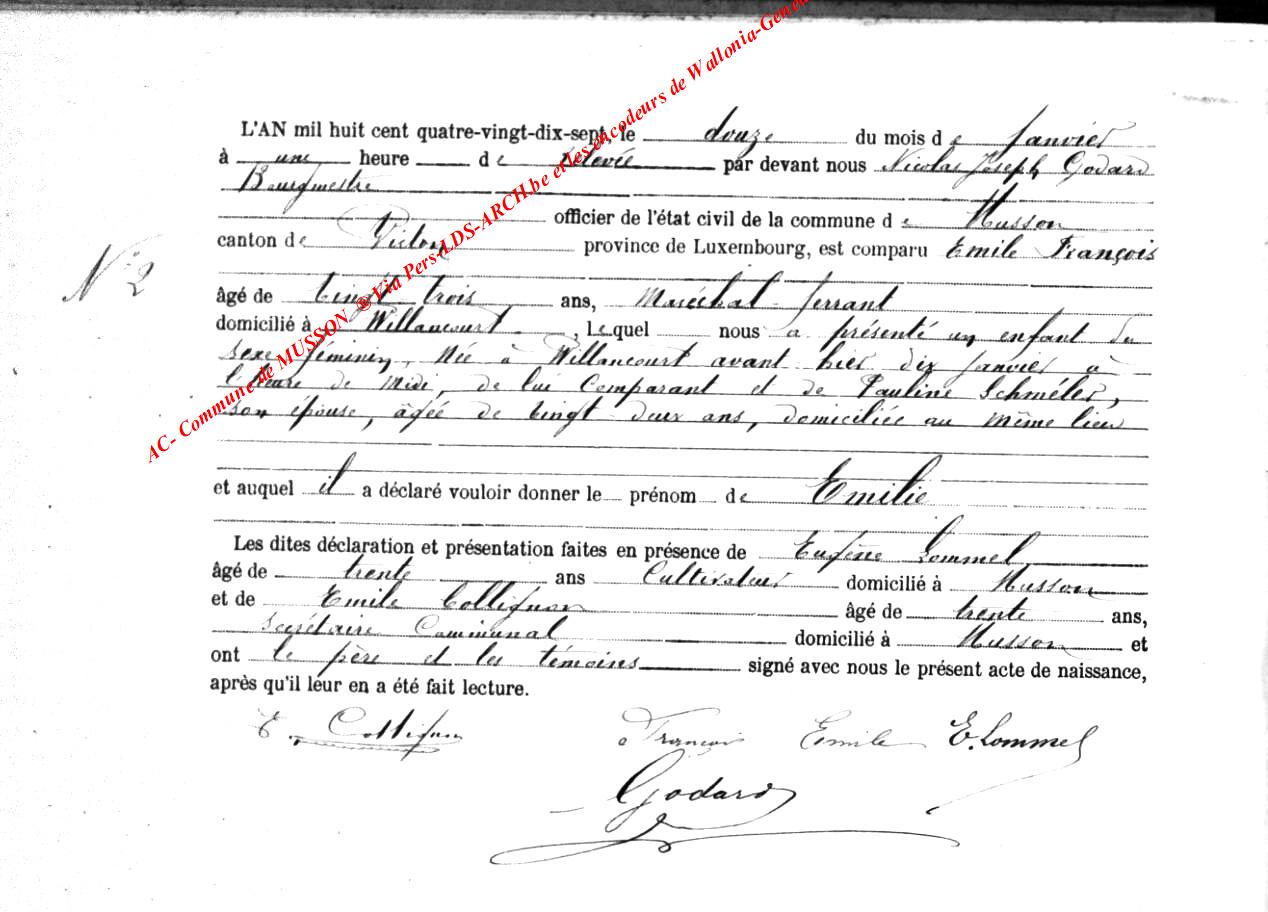 L'AN mil huit cent quatre-vingt-dix-sept, le douze du mois de Janvier
à une heure de relevée par devant nous Nicolas Joseph Godard
Bourgmestre
officier de l'état civil de la commune de Musson
canton de Virton province de Luxembourg, est comparu Emile François
N° 2
âgé de vingt trois ans, Maréchal ferrant
domicilié à Willancourt, lequel nous a présenté un enfant du
sexe féminin, Née à Willancourt avant hier dix janvier à
l'heure de Midi, de lui Comparant et de Pauline Schméler,
son épouse, âgée de vingt deux ans, domiciliée au même lieu
et auquel il a déclaré vouloir donner le prénom de Emilie
Les dites déclaration et présentation faites en présence de Eugène Lommel
âgé de trente ans Cultivateur domicilié à Musson
et de Emile Collignon âgé de trente ans,
secrétaire Communal domicilié à Musson et
ont le père et les témoins signé avec nous le présent acte de naissance,
après qu'il leur en a été fait lecture.
E. Collignon François Emile E. Lommel
Godard
AC- Commune de MUSSON @ Via Pers-LDS-ARCH.be et les encodeurs de Wallonia-Genea